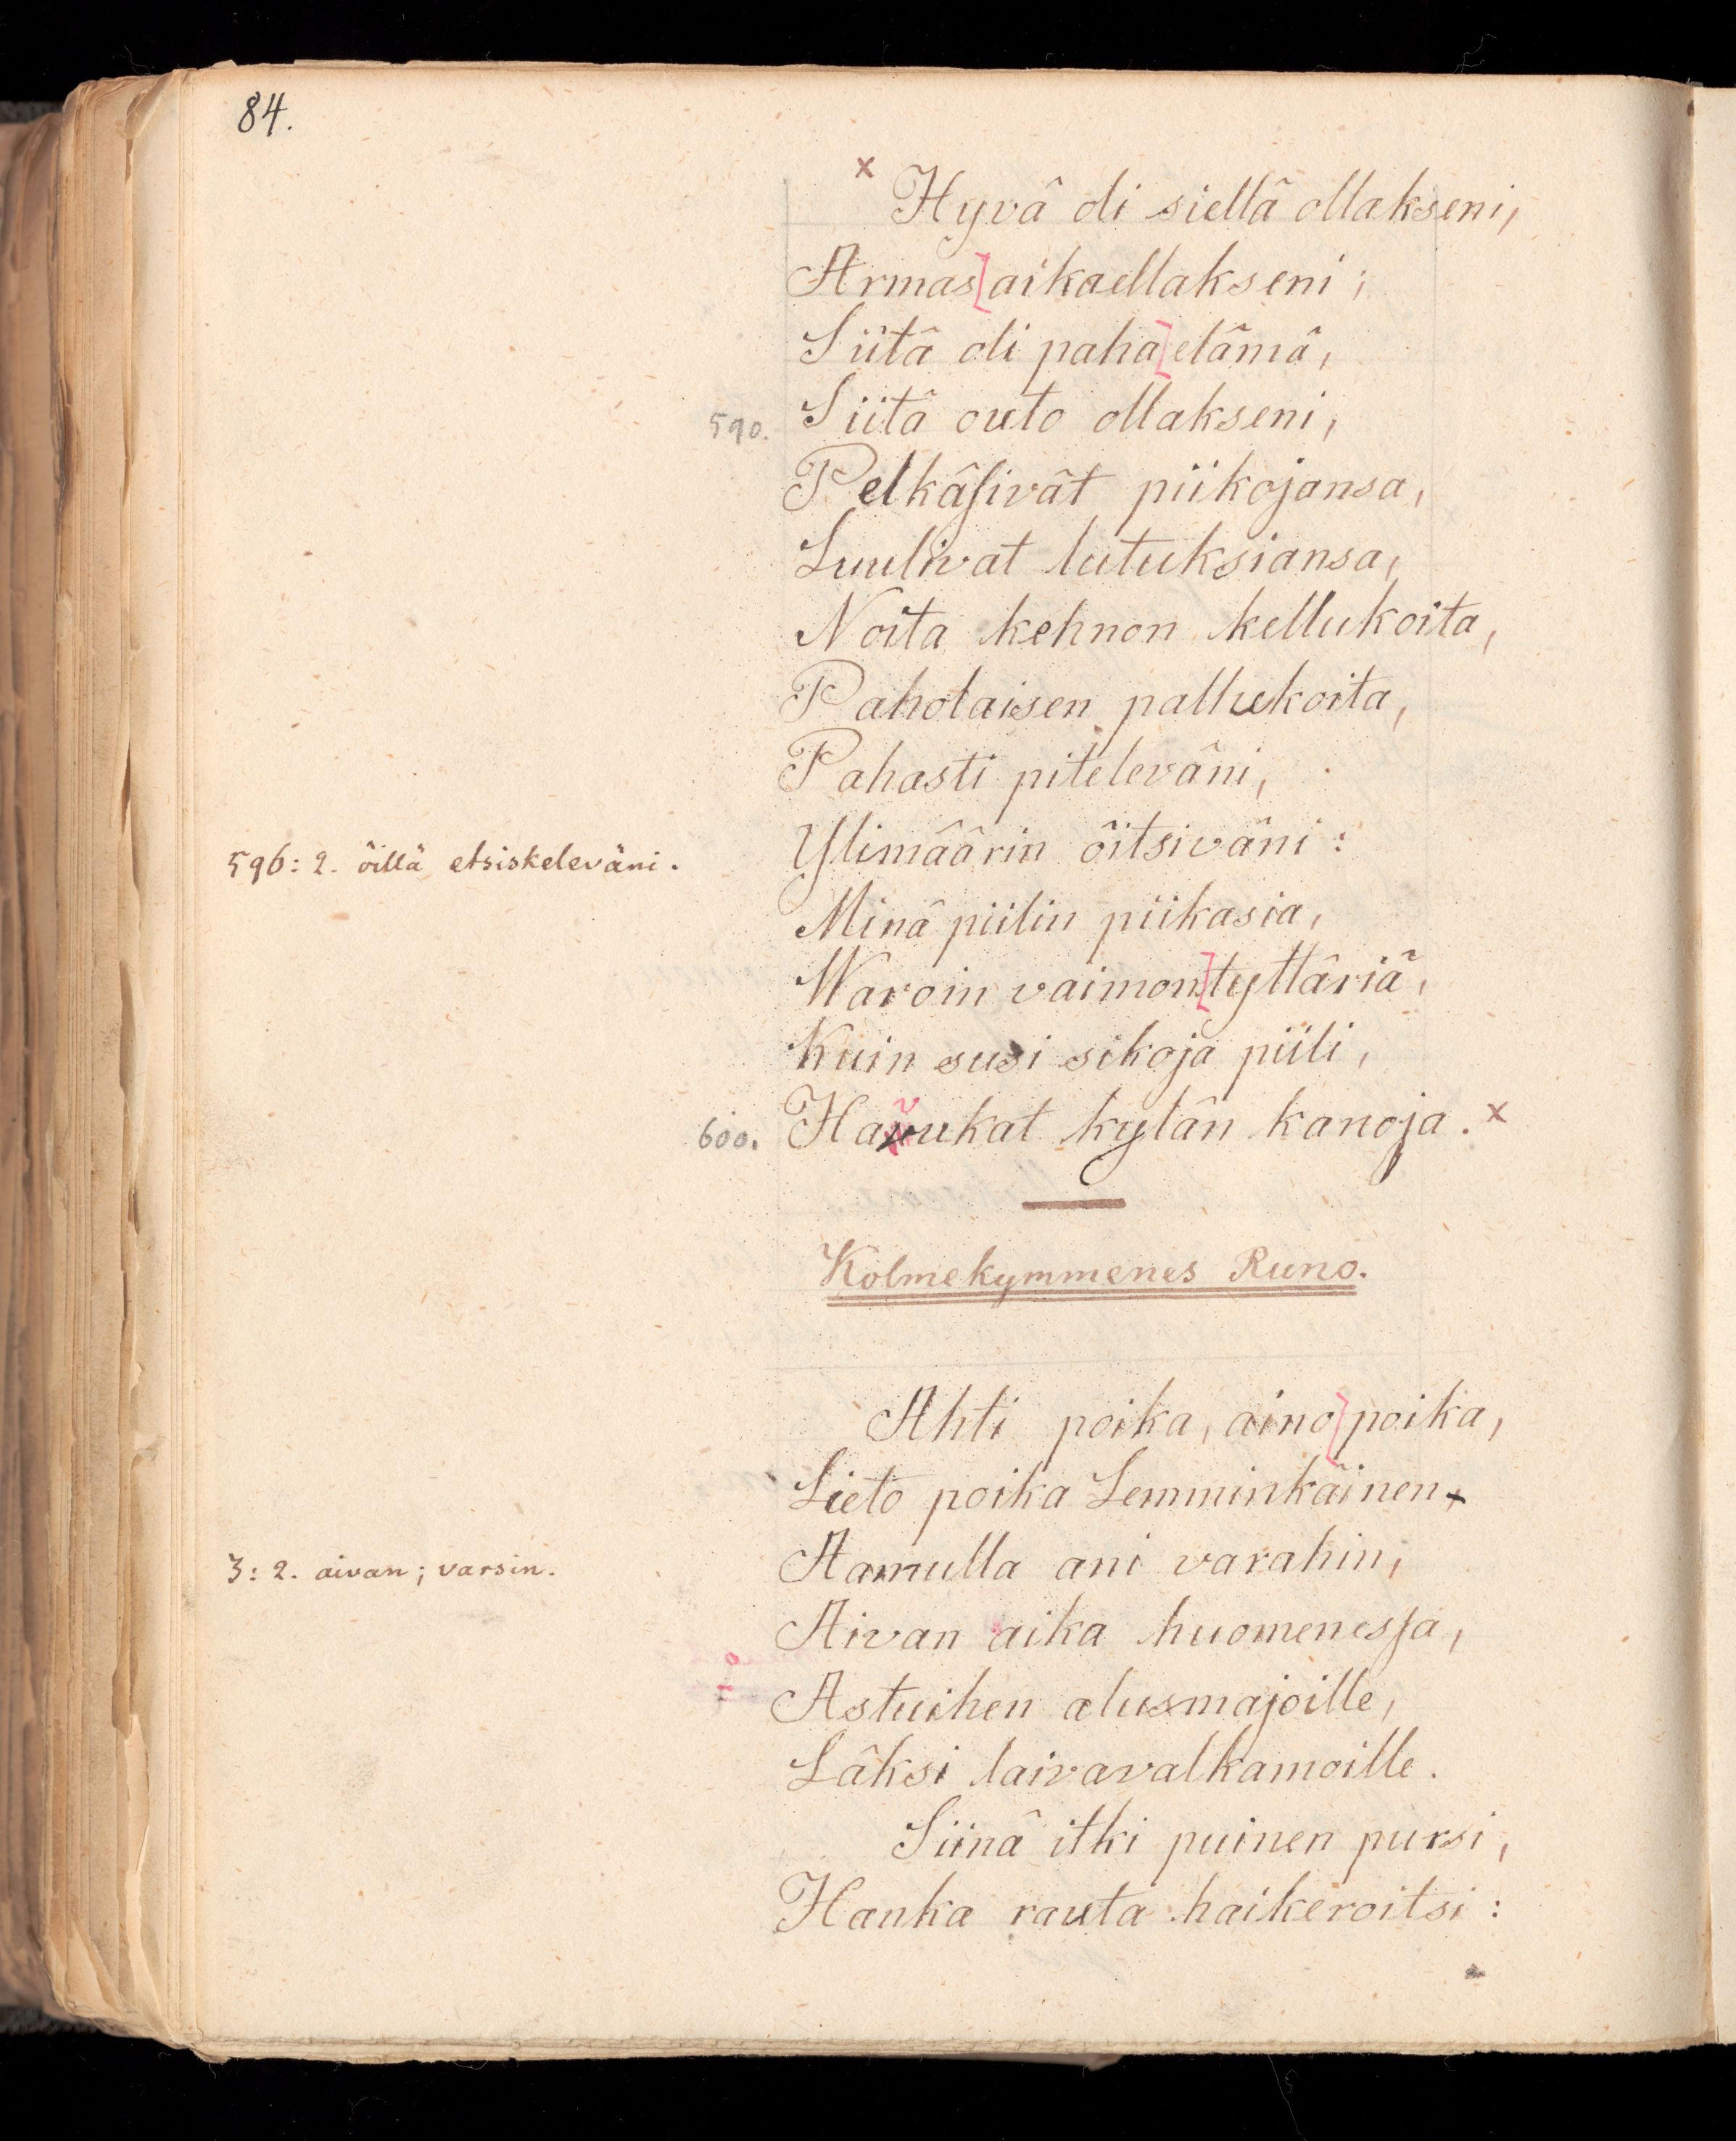 84.
x Hyvä oli siellä ollakseni,
Armas aikaellakseni;
Siitä oli paha elämä,
590. Siitä outo ollakseni,
Pelkäsivät piikojansa,
Luulivat lutuksiansa,
Noita kehnon kellukoita,
Paholaisen pallukoita,
Pahasti piteleväni,
596: 2. öillä etsiskeleväni. Ylimäärin öitsiväni:
Minä piilin piikasia,
Waroin vaimon tyttäriä,
Kuin susi sikoja piili,
600. Havukat kylän kanoja. x
Kolmekymmenes Runo.
Ahti poika, aino poika,
Lieto poika Lemminkäinen,
3: 2. aivan; varsin. Aamulla ani varahin,
Aivan aika huomenessa,
Astuihen alusmajoille,
Läksi laivavalkamoille.
Siinä itki puinen pursi,
Hanka rauta haikeroitsi: